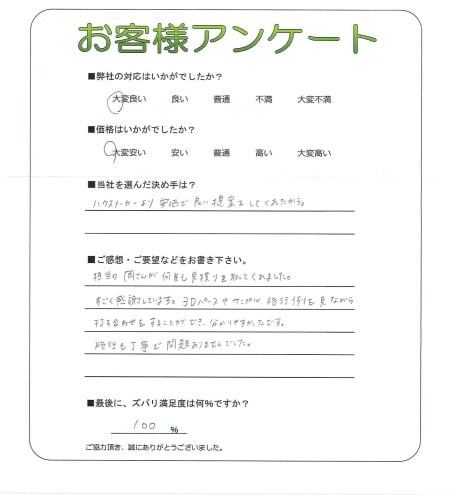 お客様アンケート
■弊社の対応はいかがでしたか？
大変良い 良い 普通 不満 大変不満
■価格はいかがでしたか？
大変安い 安い 普通 高い 大変高い
■当社を選んだ決め手は？
ハウスメーカーより安価で良い提案をしてくれたから。
■ご感想・ご要望などをお書き下さい。
担当の岡さんが何度も見積りを取ってくれました。
すごく感謝しています。3Dパースやサンプル、施行例を見ながら
打ち合わせをすることができ、分かりやすかったです。
施行も丁寧で問題ありませんでした。
■最後に、ズバリ満足度は何%ですか？
100 %
ご協力頂き、誠にありがとうございました。